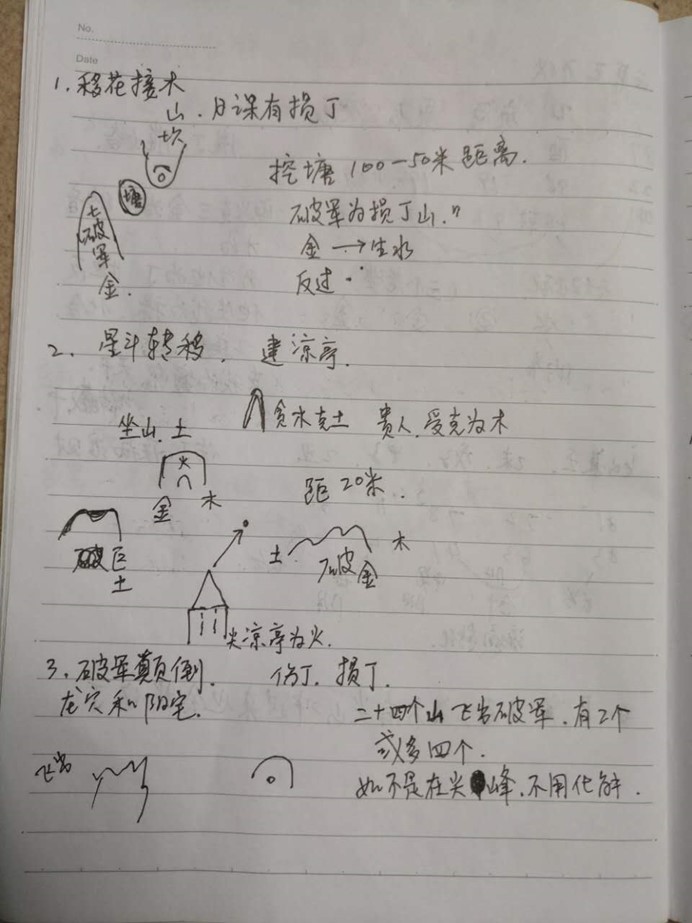 No.
Date
1. 移花接木
山. 日课有损丁
坎
挖塘 100-50米距离.
塘
破军为损丁山.
七破军
金 → 生水
金.
反过
2. 星斗转移. 建凉亭.
贪水克土 贵人. 受克为木
坐山. 土
火
距20米.
金 木
破巨
土
土. 破金 木
尖凉亭为火.
3. 破军颠倒. 伤丁. 损丁.
龙穴和阴宅.
二十四个山飞出破军. 有2个
或多四个.
飞出
如不是在尖峰. 不用化解.